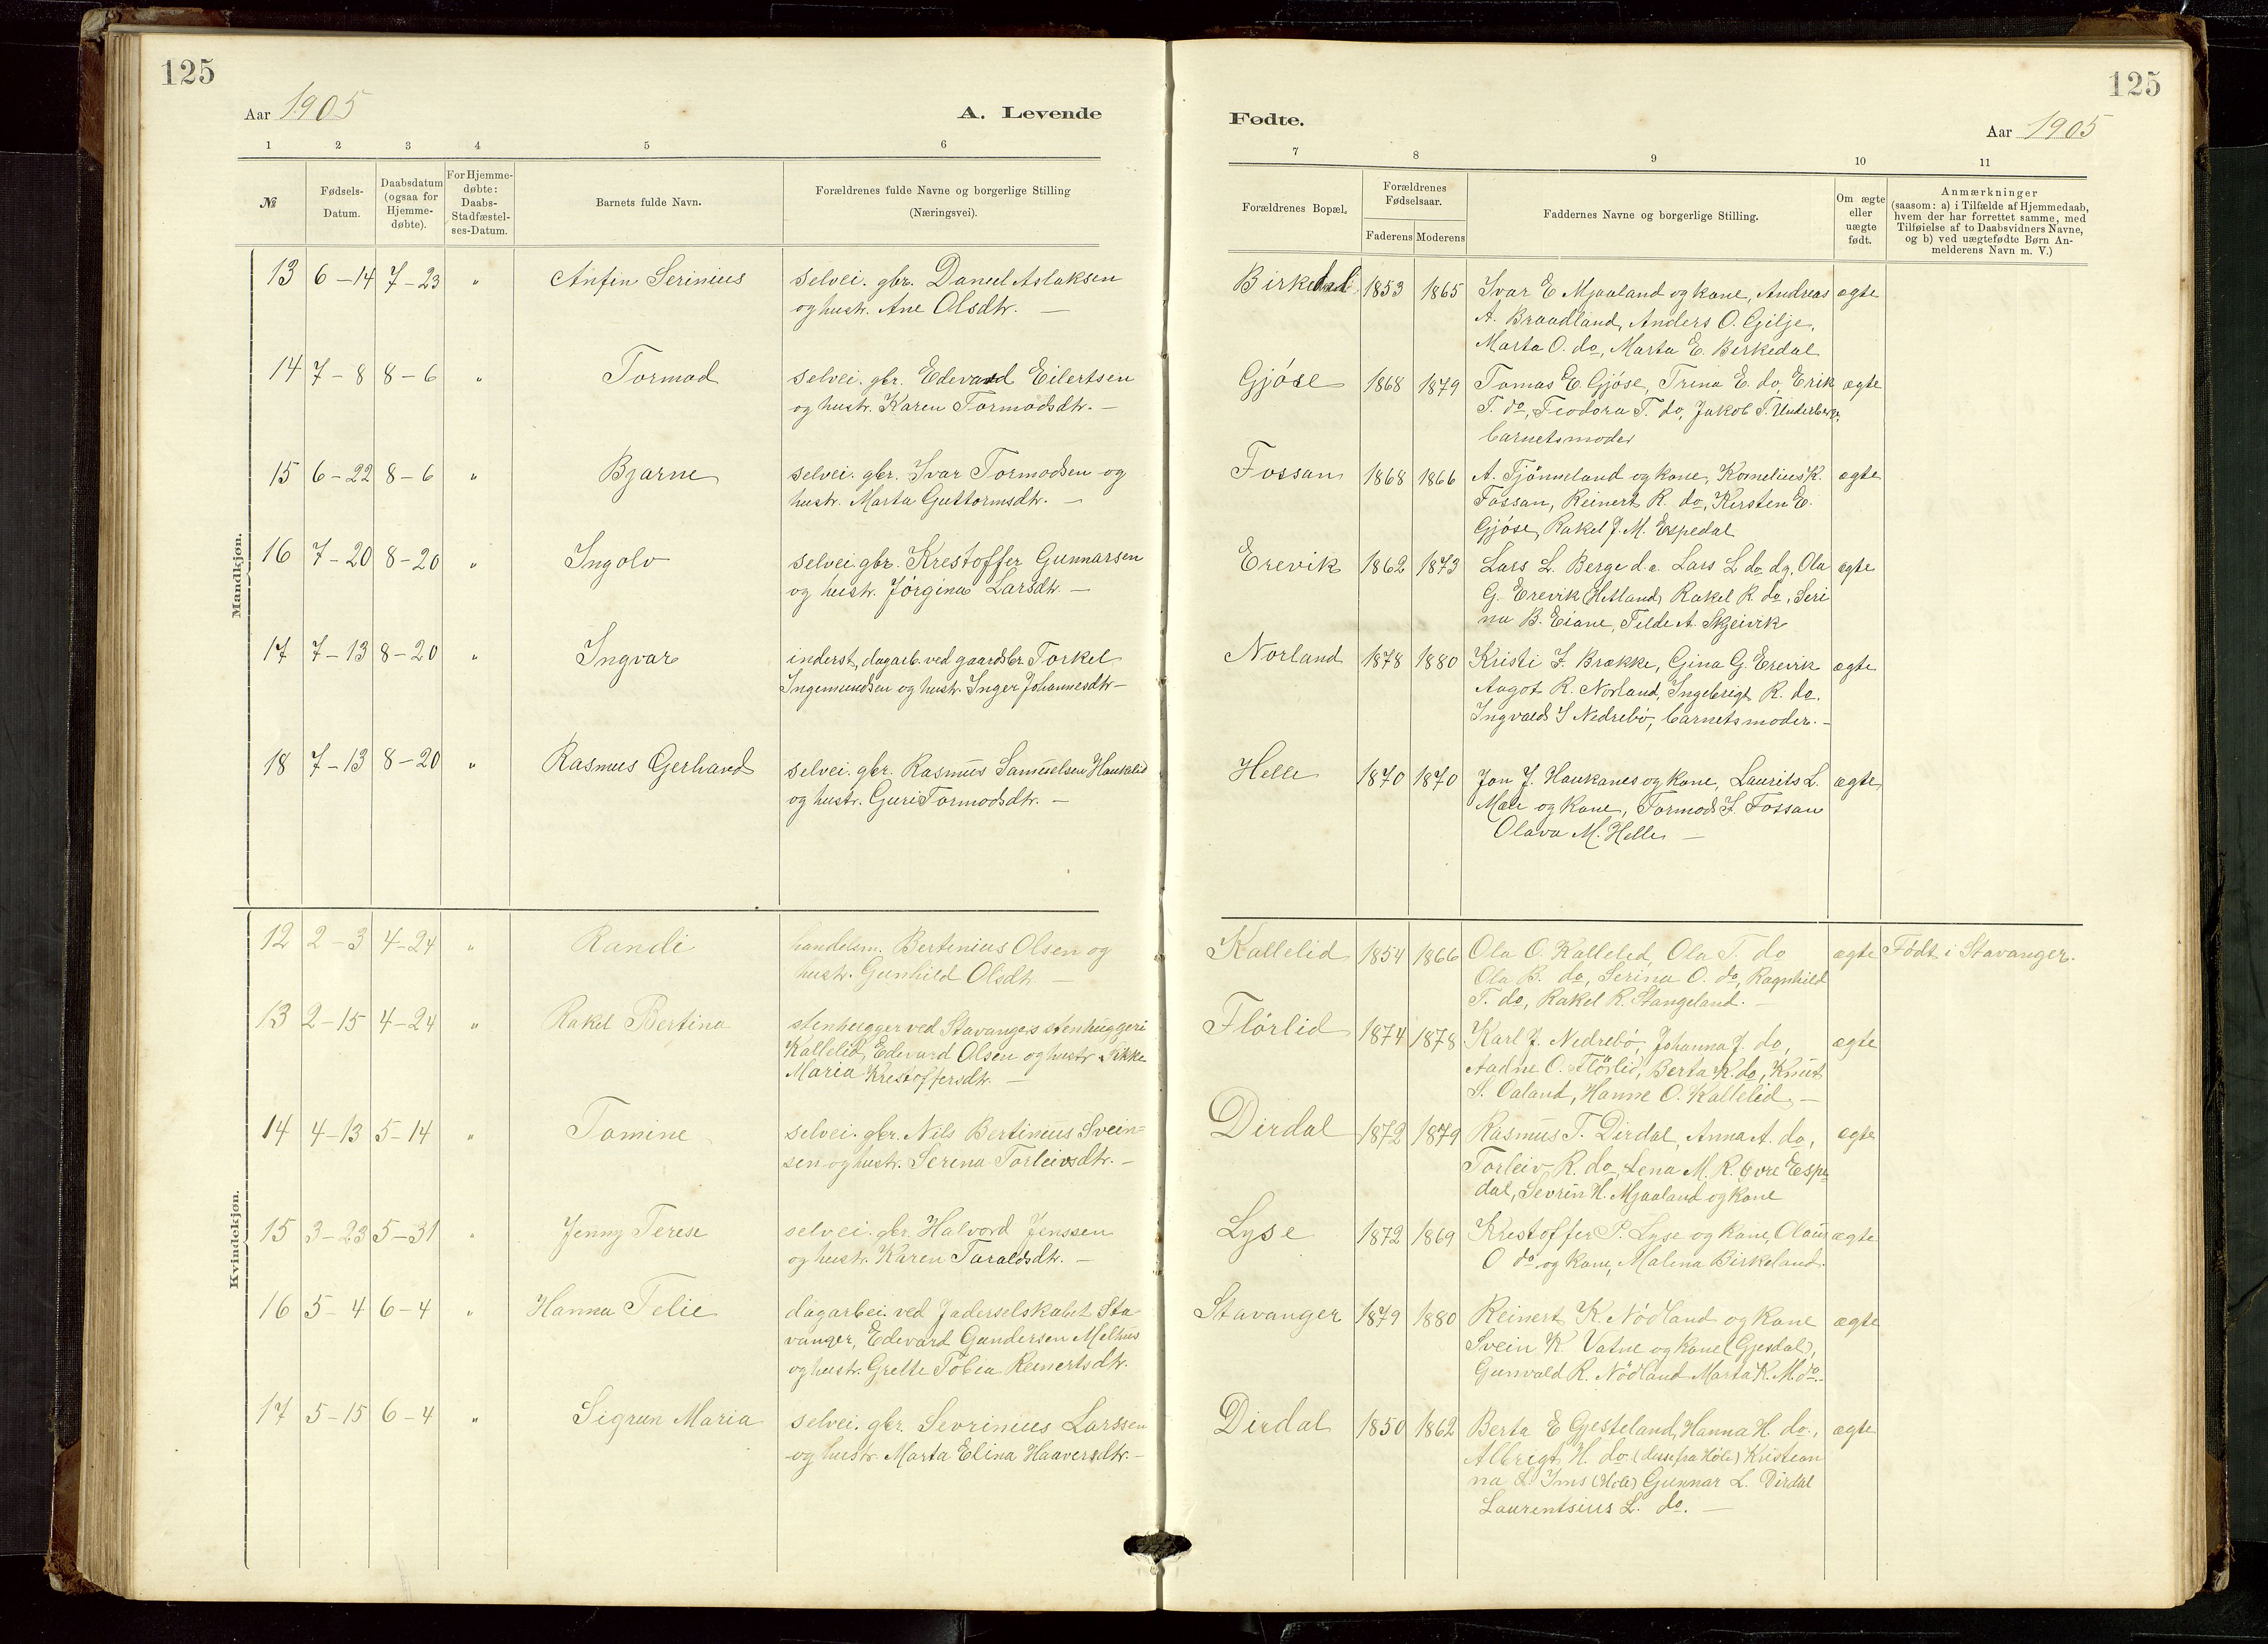 125
Aar 1905
A. Levende
1 2 3 4 5 6
№ Fødsels-Datum. Daabsdatum (ogsaa for Hjemme-døbte). For Hjemme-døbte: Daabs-Stadfæstel-ses-Datum. Barnets fulde Navn. Forældrenes fulde Navne og borgerlige Stilling (Næringsvei).
Mandkjøn.
13 6-14 7-23 " Anfin Serinius selvei. gbr. Daniel Aslaksen
og hustr. Ane Olsdtr. —
14 7-8 8-6 " Tormod selvei. gbr. Edevard Eilertsen
og hustr. Karen Tormodsdtr. —
15 6-22 8-6 " Bjarne selvei. gbr. Ivar Tormodsen og
hustr. Marta Guttormsdtr. —
16 7-20 8-20 " Ingolv selvei. gbr. Krestoffer Gunnarsen
og hustr. Jørgine Larsdtr. —
17 7-13 8-20 " Ingvar inderst, dagarb. ved gaardsbr. Torkel
Ingemundsen og hustr. Inger Johannesdtr —
18 7-13 8-20 " Rasmus Gerhard selvei. gbr. Rasmus Samuelsen Haukalid
og hustr. Guri Tormodsdtr. —
Kvindekjøn.
12 2-3 4-24 " Randi handelsm. Bertinius Olsen og
hustr. Gunhild Olsdtr. —
13 2-15 4-24 " Rakel Bertine stenhugger ved Stavangers stenhuggeri
Kallelid, Edevard Olsen og hustr.
Maria Krestoffersdtr. —
14 4-13 5-14 " Tomine selvei. gbr. Nils Bertinius Svein-
sen og hustr. Serena Torleivsdtr. —
15 3-23 5-31 " Jenny Terese selvei. gbr. Halvord Jenssen
og hustr. Karen Taraldsdtr. —
16 5-4 6-4 " Hanna Telie dagarbei. ved Jaderselskabet Sta-
vanger, Edevard Gundersen Melhus
og hustr. Grette Tobia Reinertsdtr.
17 5-15 6-4 " Sigrun Maria selvei. gbr. Sevrinius Larssen
og hustr. Marta Elina Haaversdtr. —
125
Fødte.
Aar 1905
7 8 9 10 11
Forældrenes Bopæl. Forældrenes Fødselsaar. Faderens Moderens Faddernes Navne og borgerlige Stilling. Om ægte eller uægte født. Anmærkninger (saasom: a) i Tilfælde af Hjemmedaab, hvem der har forrettet samme, med Tilføielse af to Daabsvidners Navne, og b) ved uægtefødte Børn An-melderens Navn m. V.)
Birkedal 1853 1865 Ivar E Mjaaland og kone, Andreas ægte
A. Braadland, Anders O. Gilje,
Marta O. do, Marta E. Birkedal
Gjöse 1868 1879 Tomas E. Gjöse, Trina E. do, Erik ægte
T. do, Teodora T. do, Jakob T. Underberge,
barnets moder
Fossan 1868 1866 A. Tjönneland og kone, Kornelius K. ægte
Fossan, Reinert R. do, Kirsten E.
Gjöse, Rakel J. M. Espedal
Erevik 1862 1873 Lars L. Berge d.e. Lars L do d.y. Ola ægte
G. Erevik (Hetland) Rakel R. do, Seri
na B. Eiane, Tilde A. Skjeivik
Norland 1878 1880 Kristi I. Brække, Gina G. Erevik ægte
Aagot R. Norland, Ingebrigt R. do.
Ingvald S Nedrebö, barnets moder. —
Helle 1870 1870 Jon J. Haukanes og kone, Laurits L. ægte
Mæle og kone, Tormod I. Fossan
Olava M. Helle —
Kallelid 1854 1866 Ola O. Kallelid, Ola T. do ægte Født i Stavanger.
Ola B. do, Serina O. do, Ragnhild
T. do, Rakel R. Stangeland. —
Flörlid 1874 1878 Karl J. Nedrebö, Johanna J. do, ægte
Aadne O. Flörlid, Berta K. do, Knut
S. Oaland, Hanne O. Kallelid. —
Dirdal 1872 1879 Rasmus T. Dirdal, Anna A. do, ægte
Torleiv R. do, Lena M. R. Övre Espe
dal, Sevrin H. Mjaaland og kone
Lyse 1872 1869 Krestoffer P. Lyse og kone, Olaus ægte
O do og kone, Malena Birkeland.
Stavanger 1879 1880 Reinert K. Nödland og kone ægte
Svein K. Vatne og kone (Gjesdal),
Gunvald R. Nödland Marta K. M. do. —
Dirdal 1850 1862 Berta E Gjesteland, Hanna H. do, ægte
Albrigt H. do (disse fra Höle) Kristian
na L. Ims (Höle) Gunnar L. Dirdal
Laurentsius L. do. —